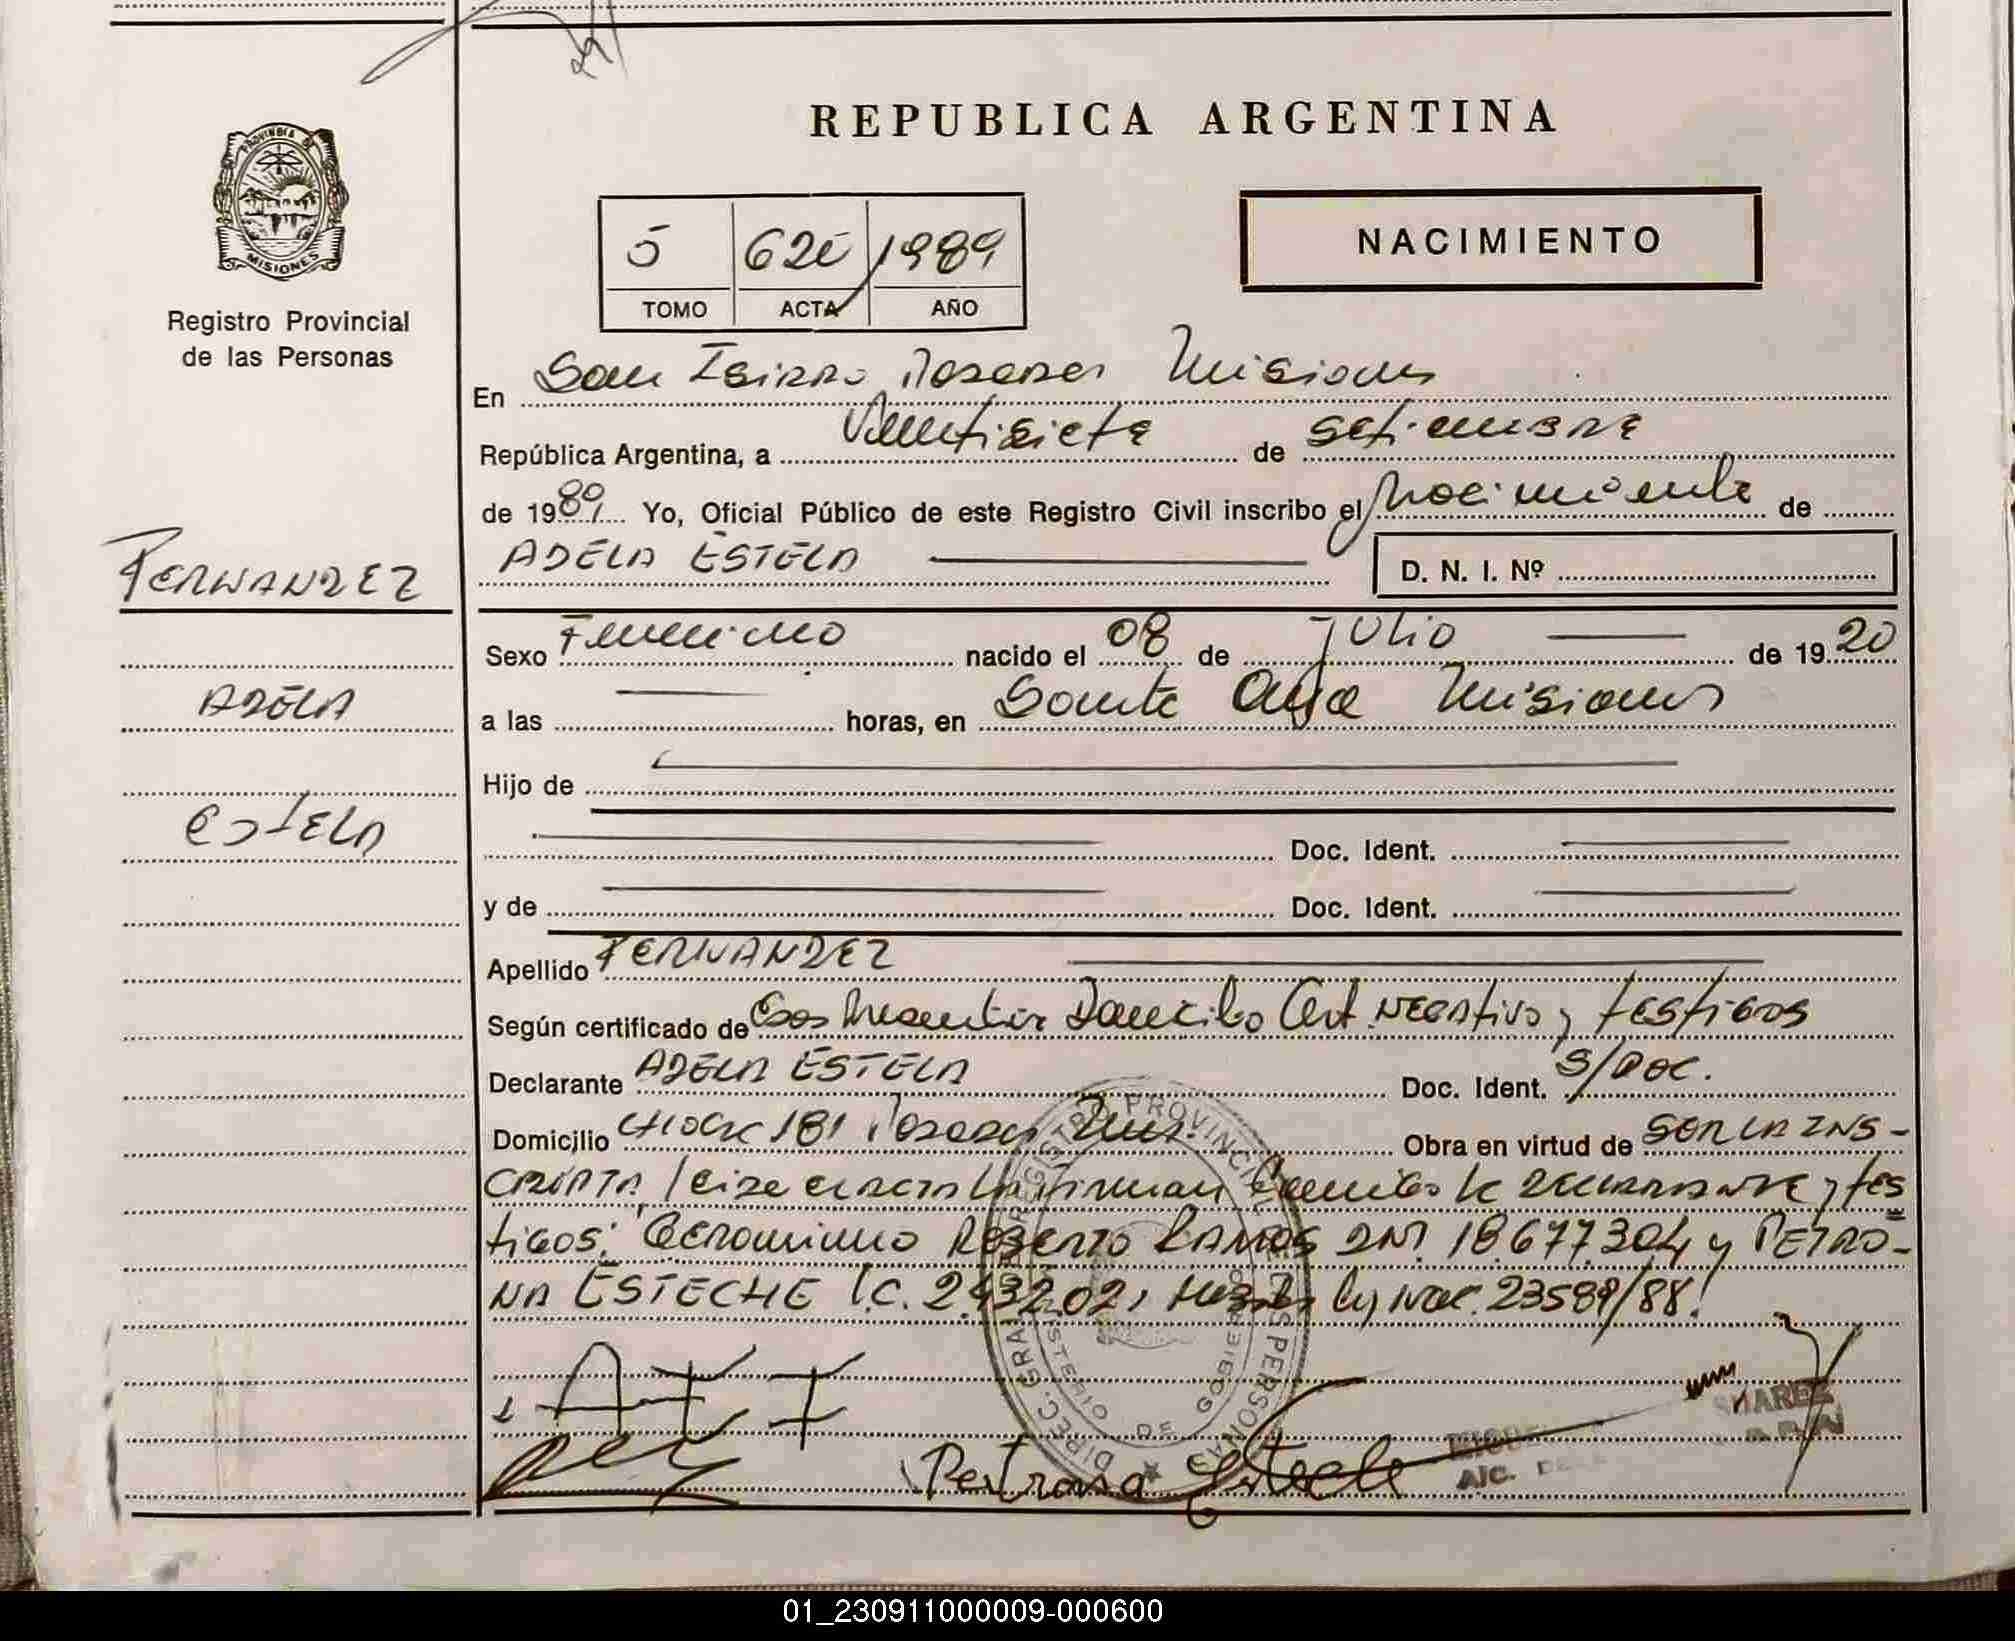 REPUBLICA ARGENTINA
PROVINCIA DE
MISIONES
Registro Provincial
de las Personas
5 1989
TOMO ACTA AÑO
NACIMIENTO
En San Isidro Posadas Misiones
República Argentina, a Veintisiete de setiembre
de 1989 Yo, Oficial Público de este Registro Civil inscribo el nacimiento de
FERNANDEZ
ADELA ESTELA
D. N. I. Nº
Sexo Femenino nacido el 08 de JULIO de 1920
ADELA
a las horas, en Santa Ana Misiones
Hijo de
ESTELA
Doc. Ident.
y de Doc. Ident.
Apellido FERNANDEZ
Según certificado de Domicilio Cert. NEGATIVO y TESTIGOS
Declarante ADELA ESTELA Doc. Ident. S/DOC.
Domicilio 181 Posadas Mnes. Obra en virtud de SER LA INS-
CRIPTA firman la DECLARANTE y tes
tigos: Geronimo ROBERTO RAMOS DNI. 18677.304 y PETRO-
NA ESTECHE 2.432.02 Ley Nac. 23589/88.
DIREC. GRAL. REGISTRO PROVINCIAL DE LAS PERSONAS
MINISTERIO DE GOBIERNO
Petrona Esteche
01_230911000009-000600